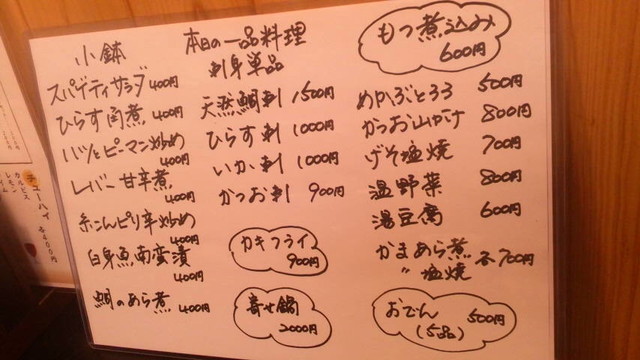 小鉢
スパゲティサラダ 400円
ひらす角煮 400円
ハツとピーマン炒め 400円
レバー甘辛煮 400円
糸こんピリ辛炒め 400円
白身魚南蛮漬 400円
鯛のあら煮 400円
本日の一品料理
刺身単品
天然鯛刺 1500円
ひらす刺 1000円
いか刺 1000円
かつお刺 900円
カキフライ
900円
寄せ鍋
2000円
もつ煮込み
600円
めかぶとろろ 500円
かつお山かけ 800円
げそ塩焼 700円
温野菜 800円
湯豆腐 600円
かまあら煮
〃 塩焼 各700円
おでん
(5品) 500円
チューハイ 各400円
カルピス
レモン